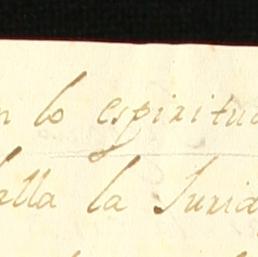 n lo espiritu
alla la Jurid